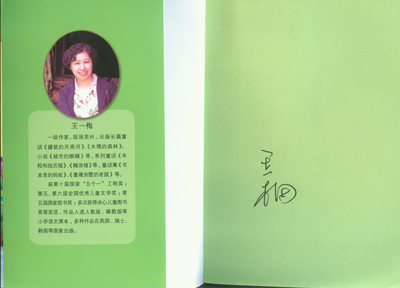 王一梅
一级作家，现居苏州，出版长篇童
话《鼹鼠的月亮河》、《木偶的森林》、
小说《城市的眼睛》等，系列童话《米
粒和挂历猫》、《糊涂猪》等，童话集《书
本里的蚂蚁》、《蔷薇别墅的老鼠》等。
获第十届国家“五个一”工程奖；
第五、第六届全国优秀儿童文学奖；第
五届国家图书奖；多次获得冰心儿童图书
奖等奖项，作品入选人教版、冀教版等
小学语文课本，多种作品在英国、瑞士、
韩国等国家出版。